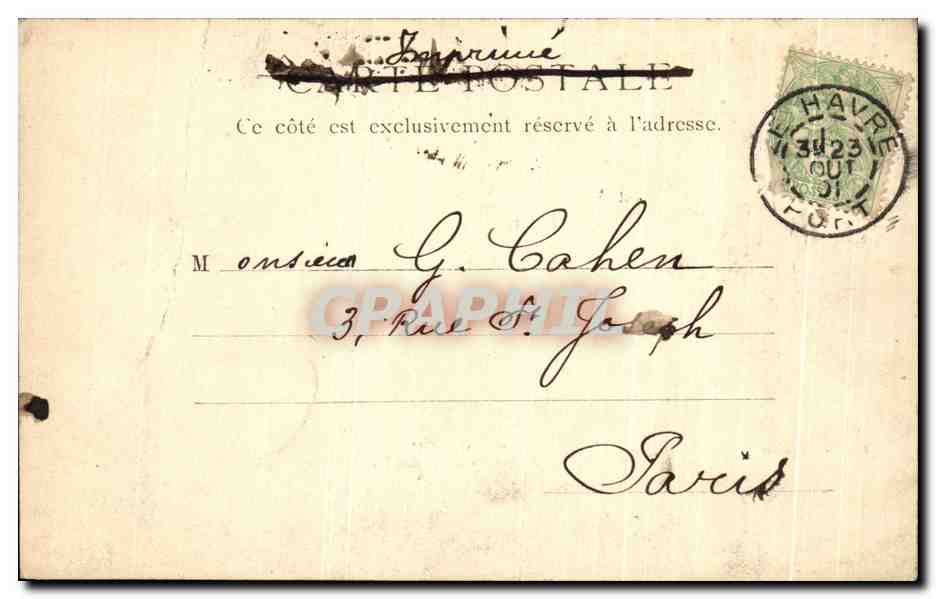 Imprimé
CARTE POSTALE
Ce côté est exclusivement réservé à l'adresse.
LE HAVRE
23
OUT
01
PORT
Monsieur G. Cahen
CPAPHIL
3, Rue St. Joseph
Paris